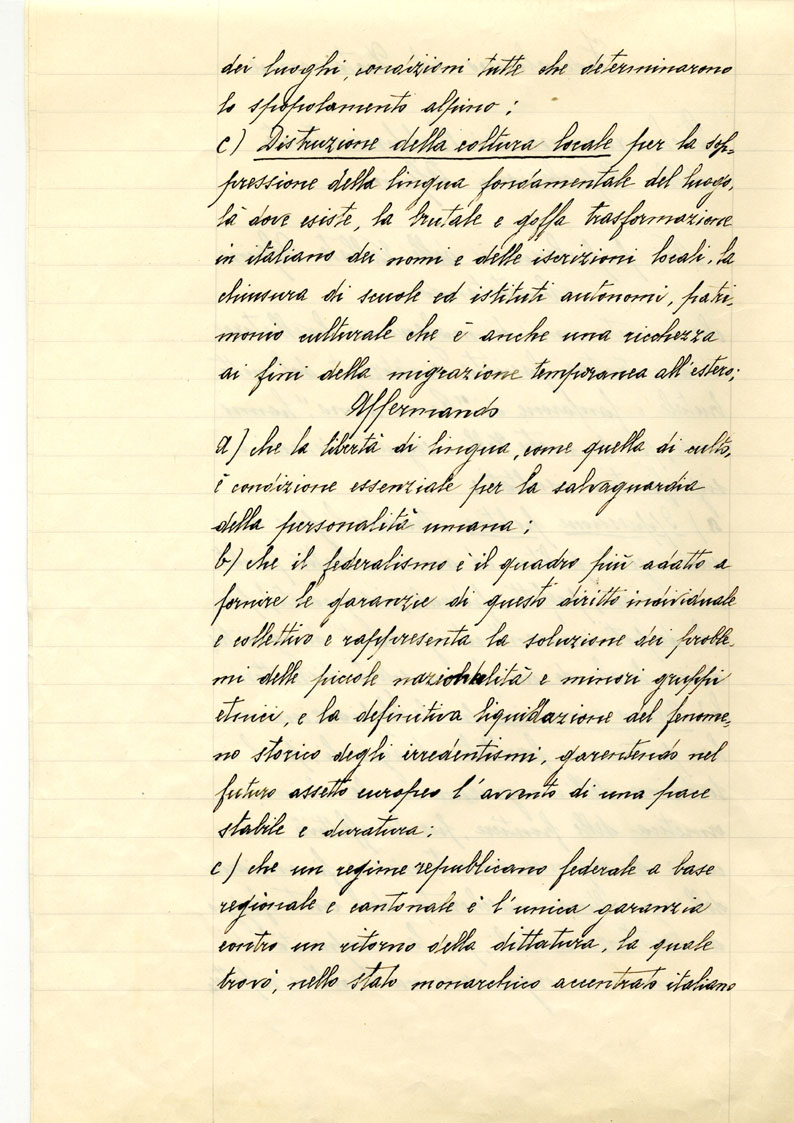 dei luoghi, condizioni tutte che determinarono
lo spopolamento alpino;
c) Distruzione della coltura locale per la sop-
pressione della lingua fondamentale del luogo,
là dove esiste, la brutale e goffa trasformazione
in italiano dei nomi e delle iscrizioni locali, la
chiusura di scuole ed istituti autonomi, patri-
monio culturale che è anche una ricchezza
ai fini della migrazione temporanea all'estero;
Affermando
a) che la libertà di lingua, come quella di culto,
è condizione essenziale per la salvaguardia
della personalità umana;
b) che il federalismo è il quadro più adatto a
fornire le garanzie di questo diritto individuale
e collettivo e rappresenta la soluzione dei proble-
mi delle piccole nazionalità e minori gruppi
etnici, e la definitiva liquidazione del fenome-
no storico degli irredentismi, garentendo nel
futuro assetto europeo l'avvento di una pace
stabile e duratura;
c) che un regime republicano federale a base
regionale e cantonale è l'unica garanzia
contro un ritorno della dittatura, la quale
trovò, nello stato monarchico accentrato italiano